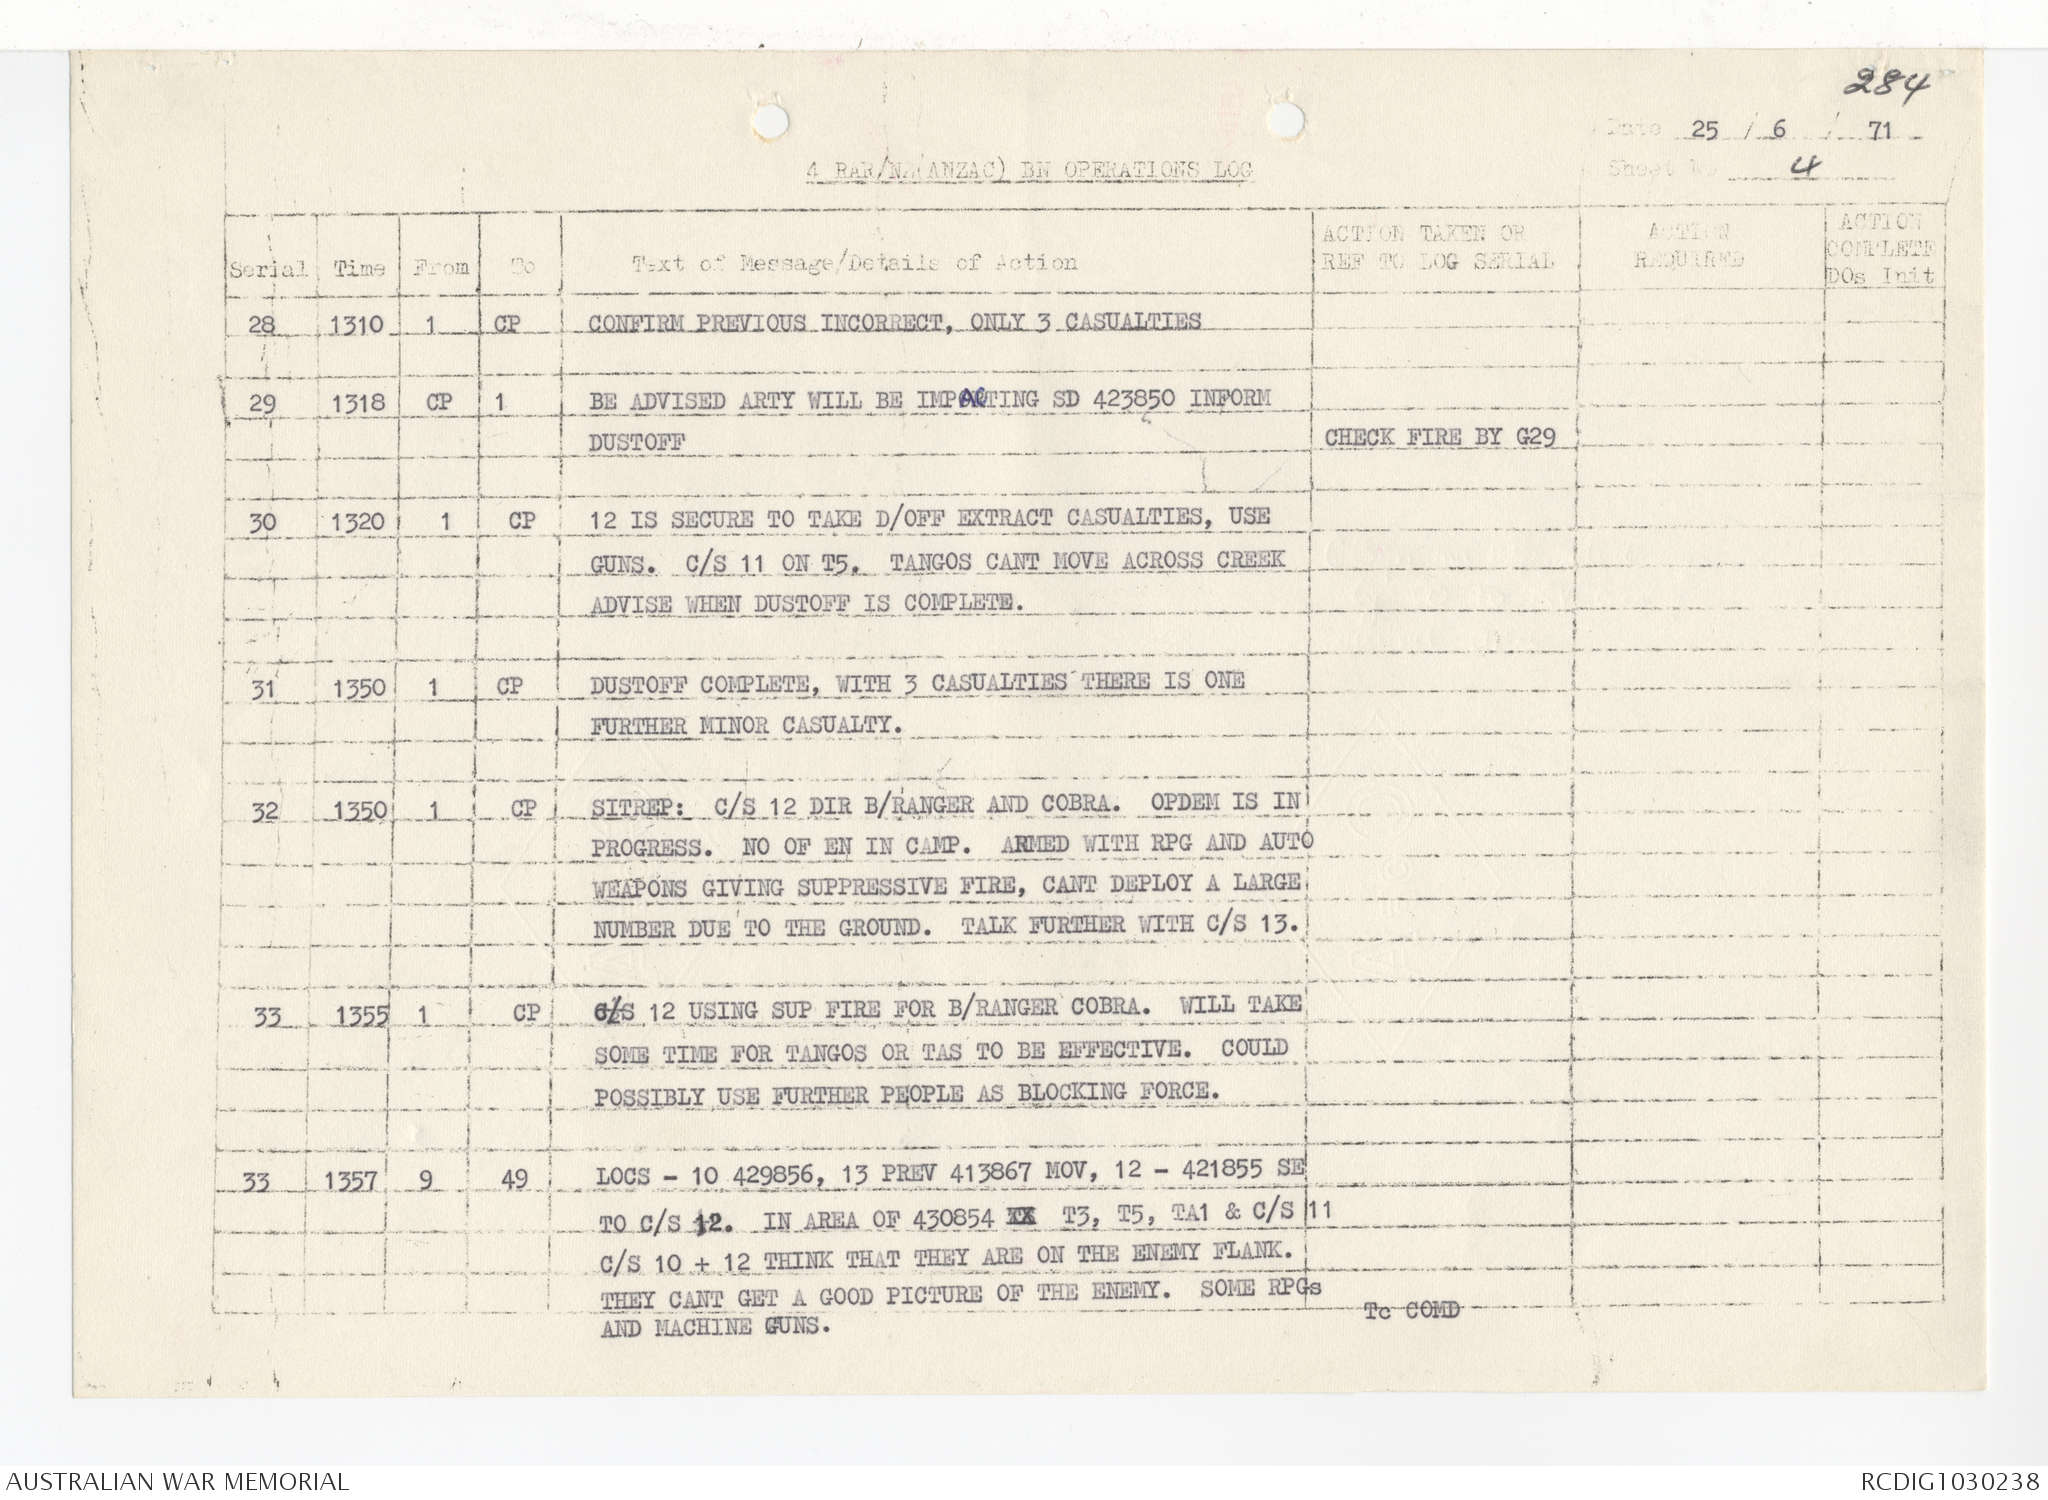 284
Date 25 / 6 / 71
Sheet No 4
4 RAR/NZ(ANZAC) BN OPERATIONS LOG
Serial Time From To Text of Message/Details of Action ACTION TAKEN OR REF TO LOG SERIAL ACTION REQUIRED ACTION COMPLETE DOs Init
28 1310 1 CP CONFIRM PREVIOUS INCORRECT, ONLY 3 CASUALTIES
29 1318 CP 1 BE ADVISED ARTY WILL BE IMPACTING SD 423850 INFORM
DUSTOFF CHECK FIRE BY G29
30 1320 1 CP 12 IS SECURE TO TAKE D/OFF EXTRACT CASUALTIES, USE
GUNS. C/S 11 ON T5. TANGOS CANT MOVE ACROSS CREEK
ADVISE WHEN DUSTOFF IS COMPLETE.
31 1350 1 CP DUSTOFF COMPLETE, WITH 3 CASUALTIES THERE IS ONE
FURTHER MINOR CASUALTY.
32 1350 1 CP SITREP: C/S 12 DIR B/RANGER AND COBRA. OPDEM IS IN
PROGRESS. NO OF EN IN CAMP. ARMED WITH RPG AND AUTO
WEAPONS GIVING SUPPRESSIVE FIRE, CANT DEPLOY A LARGE
NUMBER DUE TO THE GROUND. TALK FURTHER WITH C/S 13.
33 1355 1 CP C/S 12 USING SUP FIRE FOR B/RANGER COBRA. WILL TAKE
SOME TIME FOR TANGOS OR TAS TO BE EFFECTIVE. COULD
POSSIBLY USE FURTHER PEOPLE AS BLOCKING FORCE.
33 1357 9 49 LOCS - 10 429856, 13 PREV 413867 MOV, 12 - 421855 SE
TO C/S 12. IN AREA OF 430854 XX T3, T5, TA1 & C/S 11
C/S 10 + 12 THINK THAT THEY ARE ON THE ENEMY FLANK.
THEY CANT GET A GOOD PICTURE OF THE ENEMY. SOME RPGs
AND MACHINE GUNS. Tc COMD
AUSTRALIAN WAR MEMORIAL RCDIG1030238